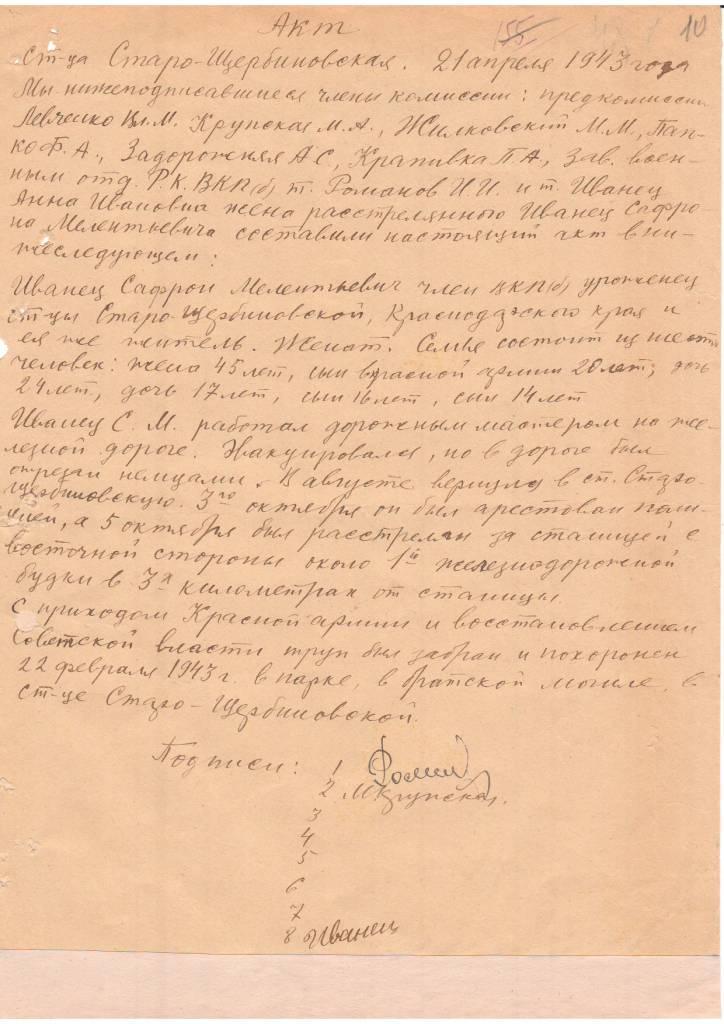 Акт
155
10
Ст-ца Старо-Щербиновская. 21 апреля 1943 года
Мы нижеподписавшиеся члены комиссии: предкомиссии
Левченко Вл.М. Крупская М.А., Жилковский М.М., Пап-
ко Ф.А., Задорожняя А.С., Крапивка П.А., Зав. воен-
ным отд. Р.К. ВКП(б) т. Романов И.И. и т. Иванец
Анна Ивановна жена расстрелянного Иванец Сафро-
на Мелентьевича составили настоящий акт в ни-
жеследующем:
Иванец Сафрон Мелентьевич член ВКП(б) уроженец
ст-цы Старо-Щербиновской, Краснодарского края и
ея же житель. Женат. Семья состоит из шести
человек: жена 45 лет, сын в красной армии 20 лет, дочь
24 лет, дочь 17 лет, сын 16 лет, сын 14 лет.
Иванец С.М. работал дорожным мастером на же-
лезной дороге. Эвакуировался, но в дороге был
отрезан немцами. В августе вернулся в ст. Старо-
Щербиновскую. 3го октября он был арестован
а 5 октября был расстрелян за станицей с
восточной стороны около 1й железнодорожной
будки в 3х километрах от станицы.
С приходом Красной армии и восстановлением
Советской власти труп был забран и похоронен
22 февраля 1943 г. в парке, в братской могиле, в
ст-це Старо-Щербиновской.
Подписи: 1
2 МКрупская.
3
4
5
6
7
8 Иванец